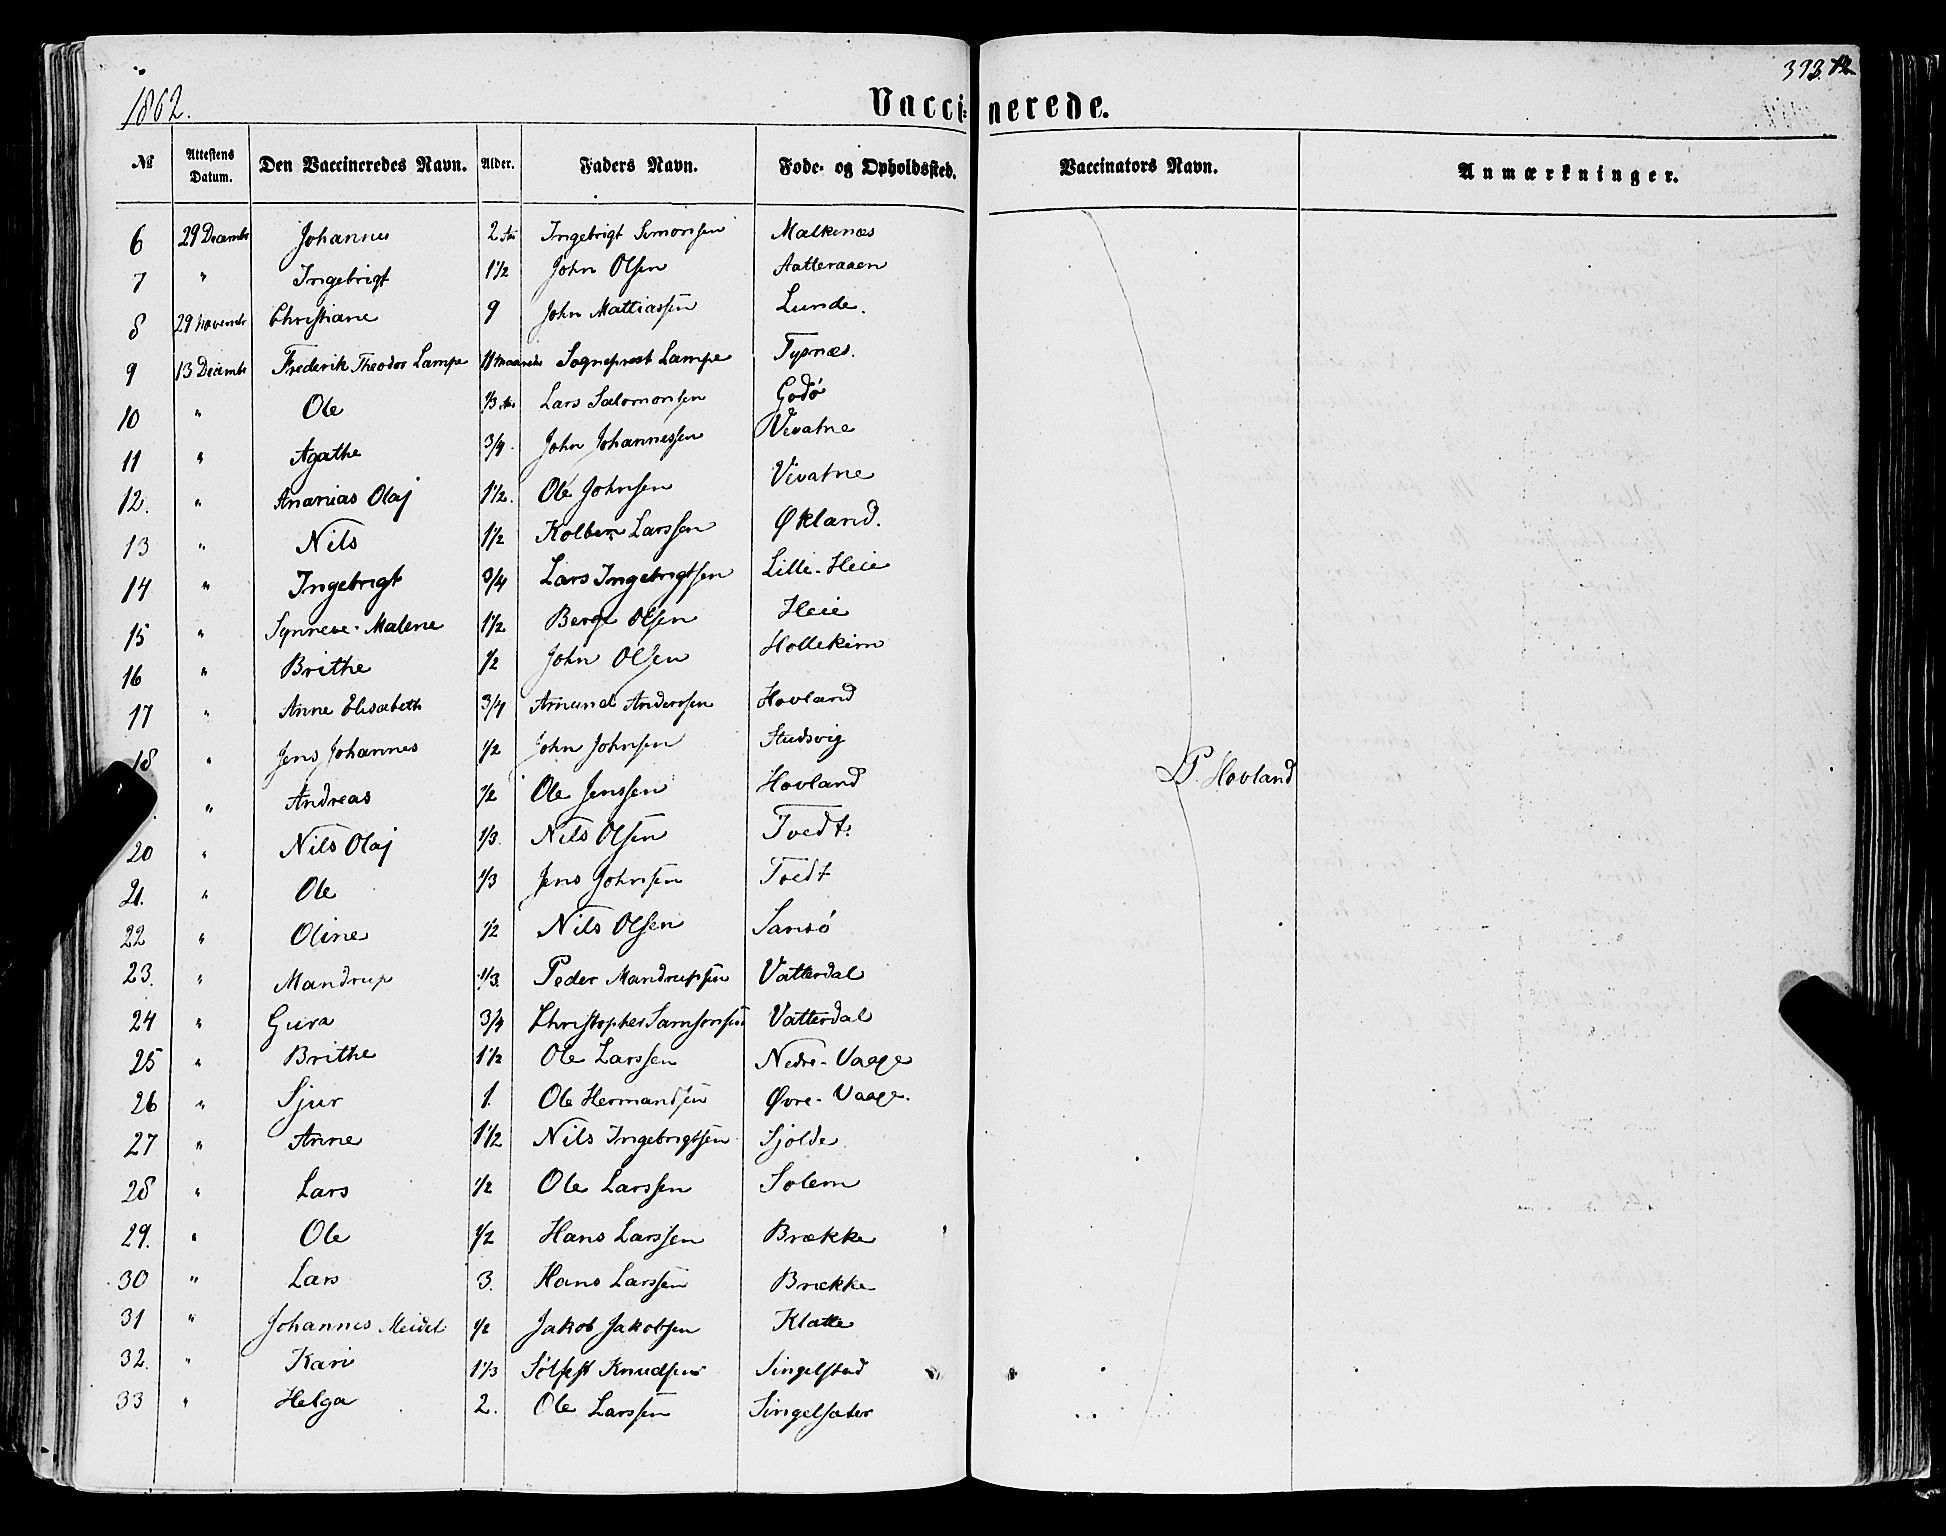 393.
1862.
Vaccinerede.
№ Attestens Datum. Den Vaccineredes Navn. Alder. Faders Navn. Føde- og Opholdssted. Vaccinators Navn. Anmærkninger.
6 29 Decembr Johannes 2 Ingebrigt Simonsen Malkenæs
7 " Ingebrigt 1 1/2 John Olsen Aatteraaen
8 29 Novembr Christiane 9 John Mattiassen Lunde.
9 13 Decembr Frederik Theodor Lampe 11 Sogneprest Lampe Tysnæs.
10 " Ole 1/3 Lars Salomonsen Godø
11 " Agathe 3/4. John Johannessen Vevatne
12. " Ananias Olaj 1 1/2. Ole Johnsen Vevatne
13 " Nils 1 1/2 Kolben Larssen Økland.
14 " Ingebrigt 3/4 Lars Ingebrigtsen Lille-Heie
15 " Synneve-Malene 1 1/2 Berge Olsen Heie
16 " Brithe 1/2 John Olsen Hollekim
17 " Anne Elisabeth 3/4 Amund Anderssen Hovland
18 " Jens Johannes 1/2 John Johnsen Studsvig
" Andreas 1/2 Ole Jenssen Hovland P. Hovland
20 " Nils Olaj 1/3. Nils Olsen Tvedt.
21. " Ole 1/3 Jens Johnsen Tvedt
22 " Oline 1/2 Nils Olsen Sansø
23. " Mandrup 1/3. Peder Mandrupsen Vatterdal
24 " Gura 3/4 Christopher Samsonsen Vatterdal
25 " Brithe 1 1/2 Ole Larssen Nedre-Vaage
26 " Sjur 1. Ole Hermandsen Øvre-Vaage.
27 " Anne 1 1/2 Nils Ingebrigtsen Sjolde
28 " Lars 1/2 Ole Larssen Solem
29. " Ole 1/2 Hans Larssen Brække
30 " Lars 3. Hans Larssen Brække
31 " Johannes Meidel 1/2 Jakob Jakobsen Klatte
32. " Kari 1 1/3 Sølfest Knudsen Singelstad
33 " Helga 2. Ole Larssen Singelsæter